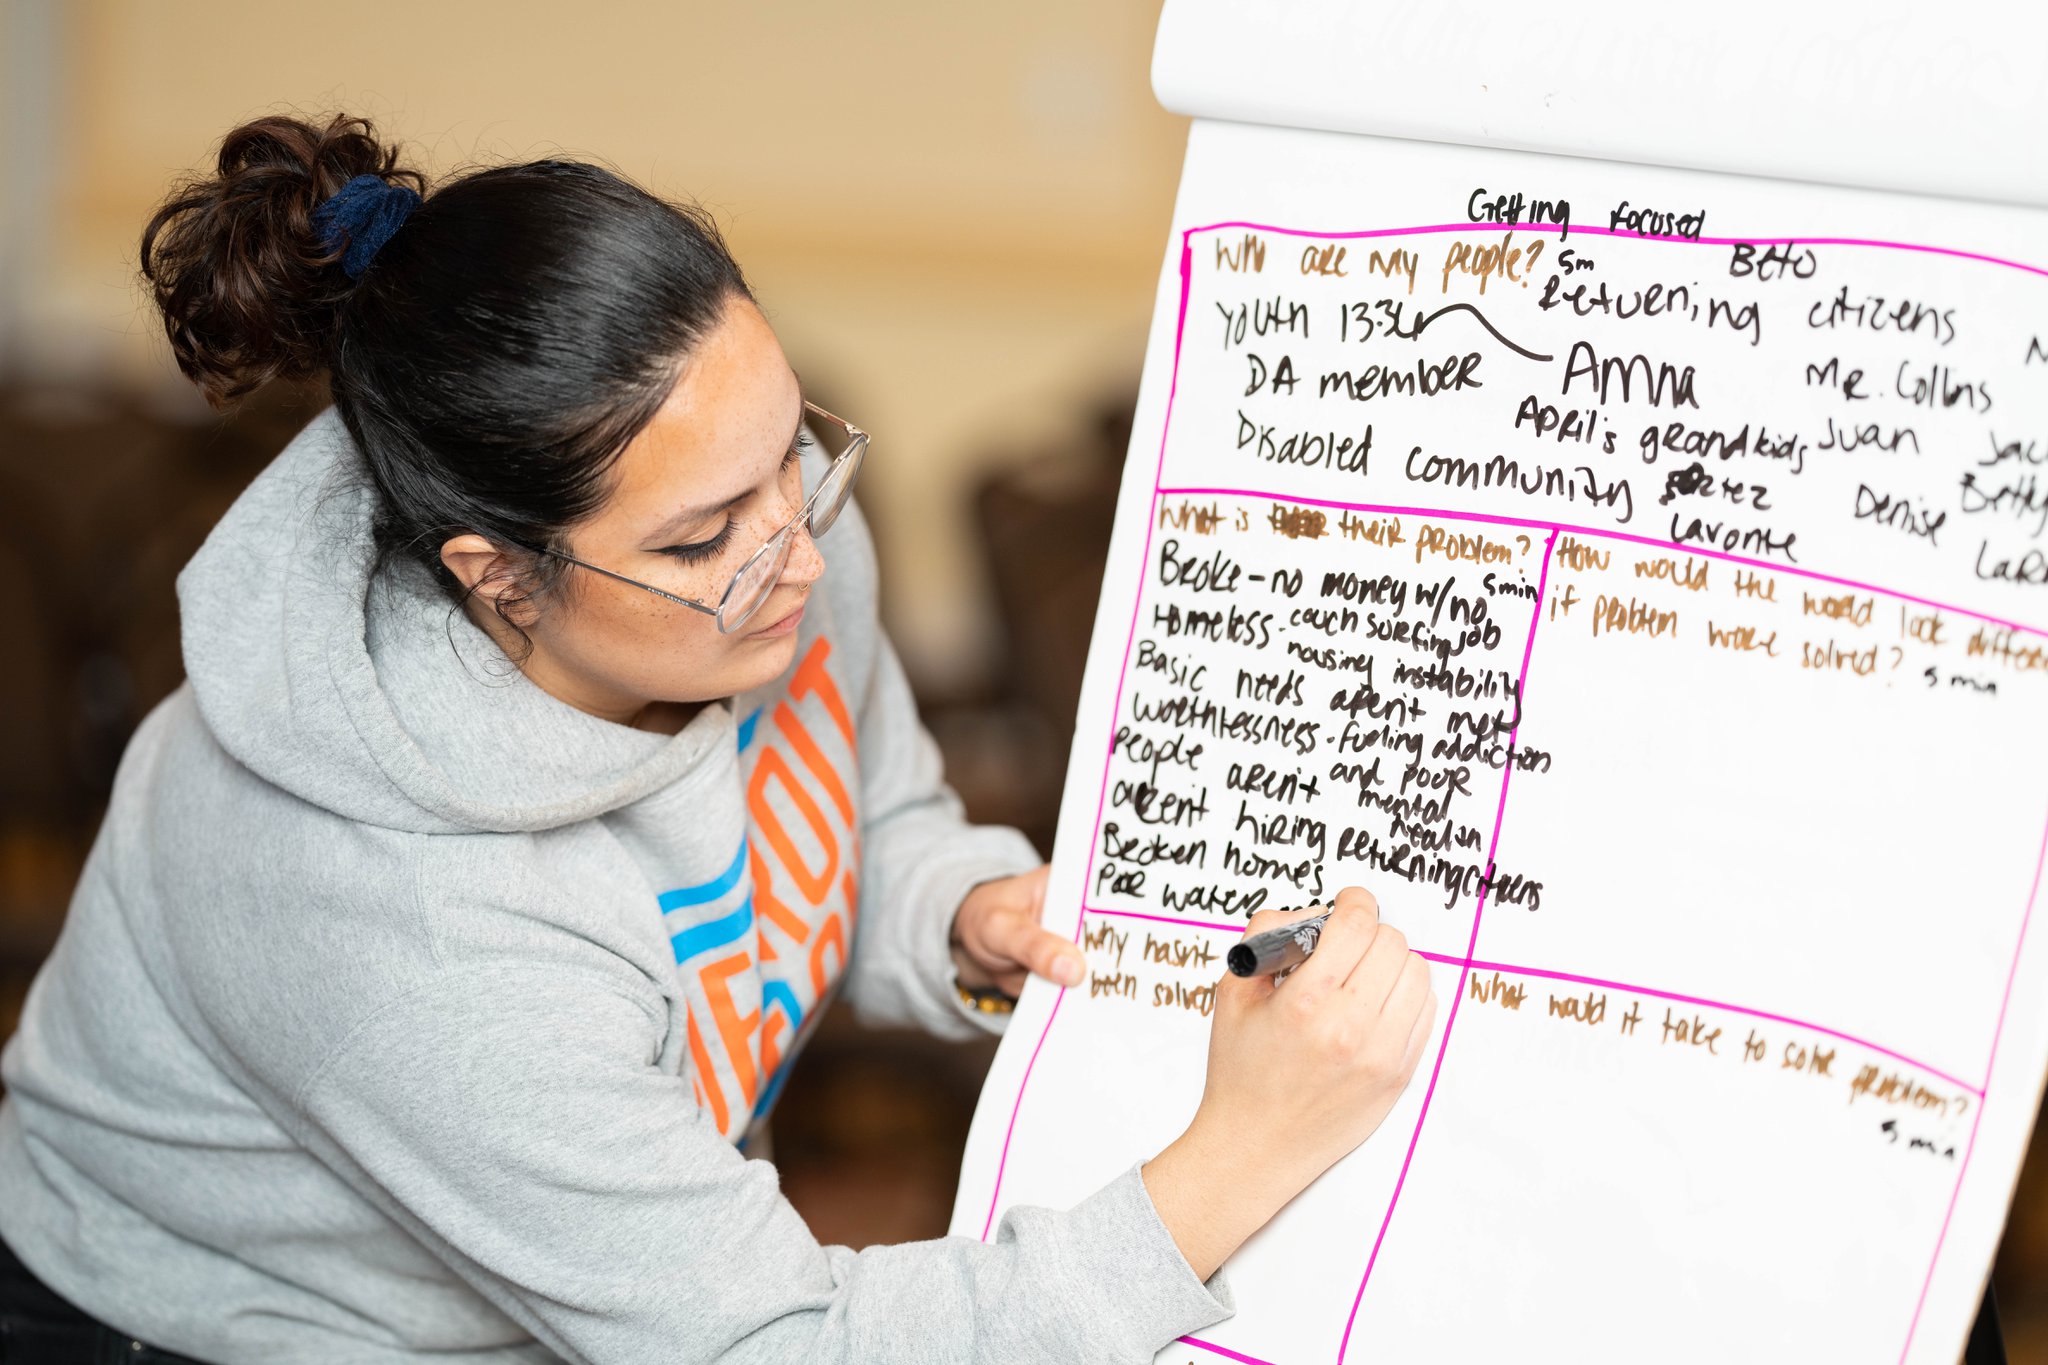 Getting Focused
Who are my people? 5m
Beto
Returning citizens
Youth 13-34
DA member
Amna
Mr. Collins
April's grandkids
Juan
Disabled community
Denise
Betty
Lavonte
What is their problem?
5 min
Broke - no money w/no job
Homeless - couch surfing
housing instability
Basic needs aren't met
Worthlessness - fueling addiction
and poor
mental
health
People aren't
arent hiring returning citizens
Broken homes
Poor water
How would the world look different
if problem were solved? 5 min
Why hasn't
been solved
What would it take to solve problem?
5 min
DETROIT